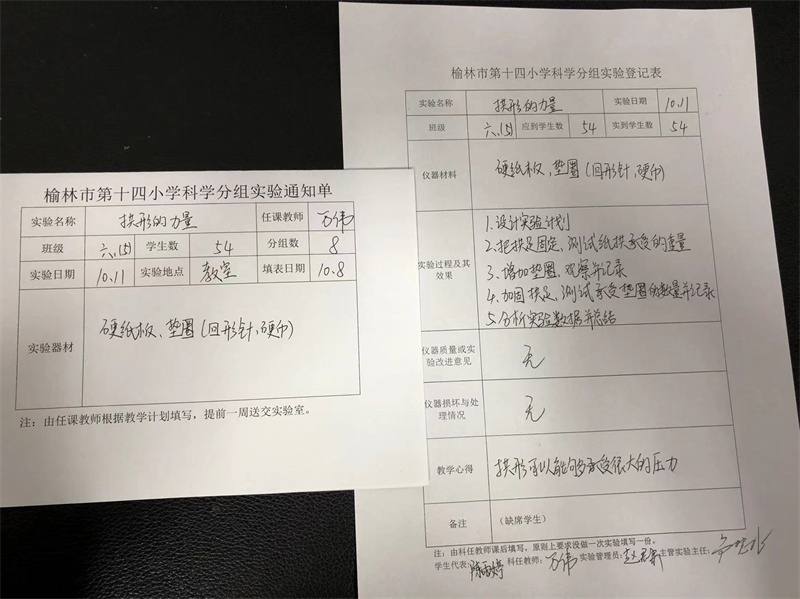 榆林市第十四小学科学分组实验通知单
实验名称 拱形的力量 任课教师 万伟
班级 六.(5) 学生数 54 分组数 8
实验日期 10.11 实验地点 教室 填表日期 10.8
实验器材 硬纸板、垫圈(回形针、硬币)
注：由任课教师根据教学计划填写，提前一周送交实验室。
榆林市第十四小学科学分组实验登记表
实验名称 拱形的力量 实验日期 10.11
班级 六.(5) 应到学生数 54 实到学生数 54
仪器材料 硬纸板、垫圈(回形针、硬币)
实验过程及其效果
1.设计实验计划
2.把拱足固定、测试纸拱承受的重量
3.增加垫圈、观察并记录
4.加固拱足、测试承受垫圈的数量并记录
5.分析实验数据并总结
仪器质量或实验改进意见 无
仪器损坏与处理情况 无
教学心得 拱形可以能够承受很大的压力
备注 (缺席学生)
注：由科任教师课后填写，原则上要求没做一次实验填写一份。
学生代表：陈雨婷 科任教师：万伟 实验管理员： 主管实验主任：